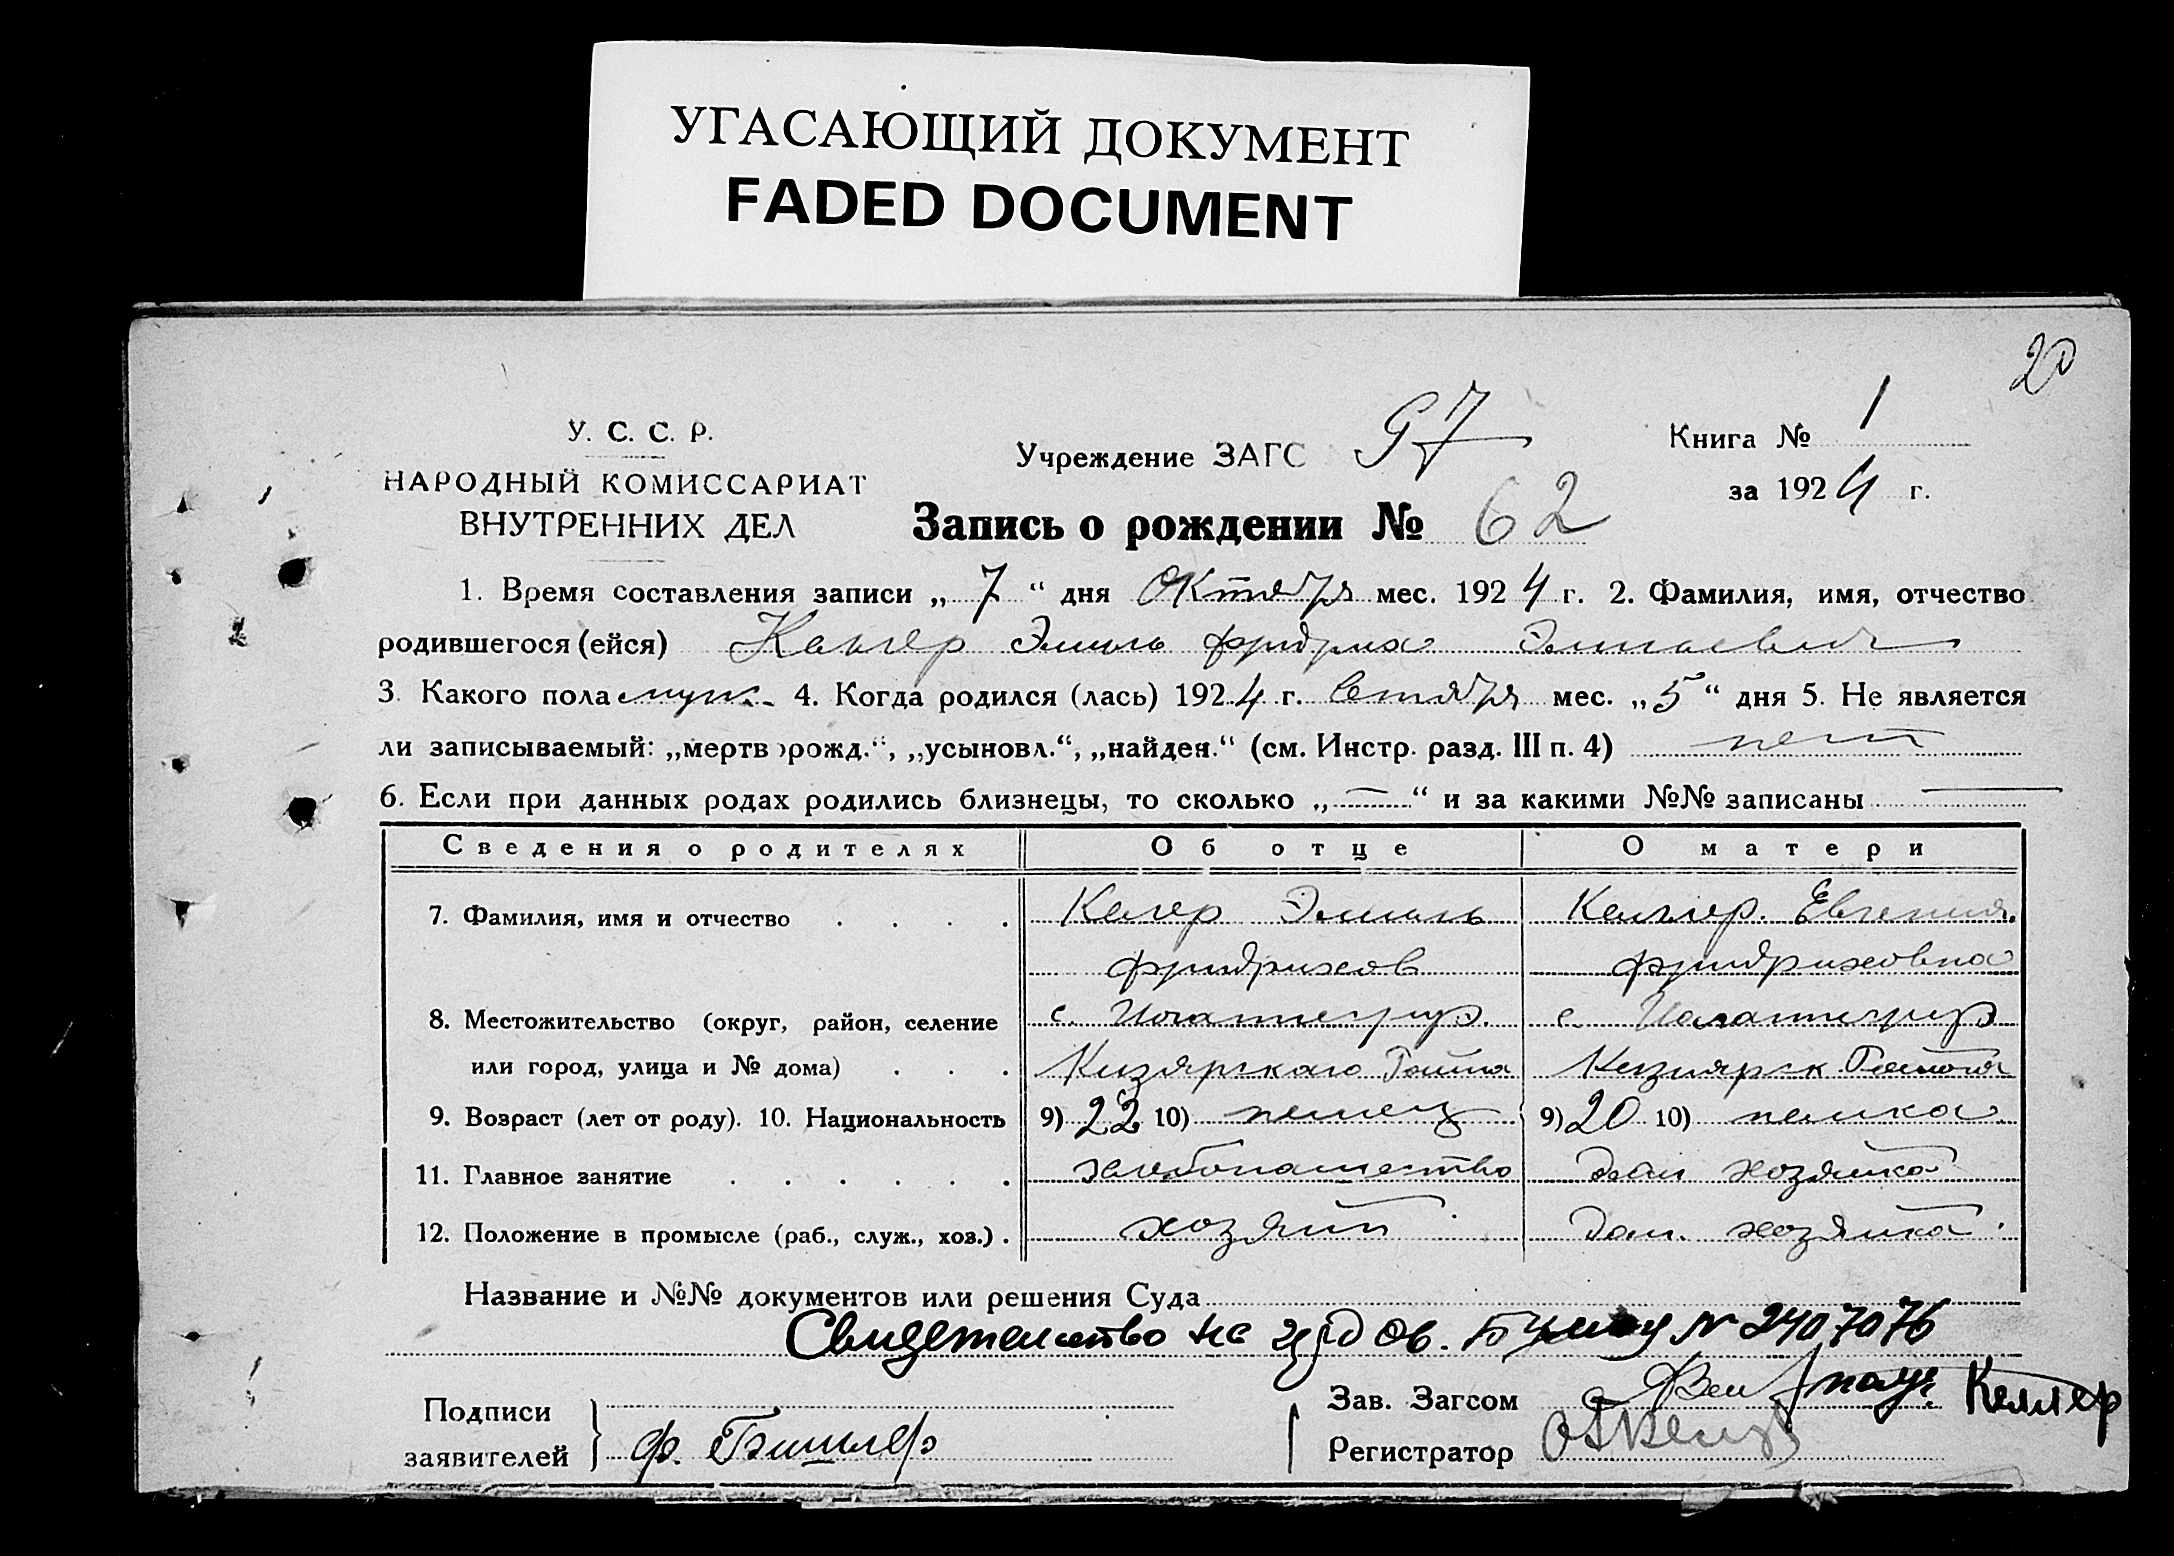 УГАСАЮЩИЙ ДОКУМЕНТ
FADED DOCUMENT
20
У. С. С. Р.
НАРОДНЫЙ КОМИССАРИАТ
ВНУТРЕННИХ ДЕЛ
Учреждение ЗАГС 97
Книга № 1
за 1924 г.
Запись о рождении № 62
1. Время составления записи „7“ дня Октября мес. 1924 г. 2. Фамилия, имя, отчество
родившегося (ейся) Эмиль Фридрих Эмильевич
3. Какого пола муж. 4. Когда родился (лась) 1924 г. мес. „5“ дня 5. Не является
ли записываемый: „мертворожд.“, „усыновл.“, „найден.“ (см. Инстр. разд. III п. 4) нет
6. Если при данных родах родились близнецы, то сколько „—“ и за какими №№ записаны —
Сведения о родителях Об отце О матери
7. Фамилия, имя и отчество . . . . Келер Эмиль Келлер. Евгения
Фридрихов Фридриховна
8. Местожительство (округ, район, селение с. с.
или город, улица и № дома) . . . Кизярского Района Кизиярск Района
9. Возраст (лет от роду). 10. Национальность 9) 22 10) немец 9) 20 10) немка
11. Главное занятие . . . . . . хлебопашество дом хозяйка
12. Положение в промысле (раб., служ., хоз.) . хозяин дом. хозяйка
Название и №№ документов или решения Суда
Свидетельство на Бумагу № 2407076
Подписи
заявителей } ф.
Зав. Загсом получ. Келлер
Регистратор